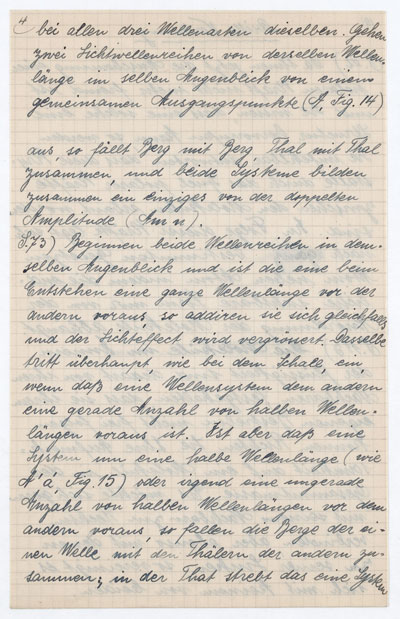 4
bei allen drei Wellenarten dieselben. Gehen
zwei Lichtwellenreihen von derselben Wellen-
länge im selben Augenblick von einem
gemeinsamen Ausgangspunkte (A, Fig. 14)
aus, so fällt Berg mit Berg, Thal mit Thal
zusammen, und beide Systeme bilden
zusammen ein einziges von der doppelten
Amplitude (A m n).
S.73) Beginnen beide Wellenreihen in dem-
selben Augenblick und ist die eine beim
Entstehen eine ganze Wellenlänge vor der
andern voraus, so addiren sie sich gleichfalls
und der Lichteffect wird vergrössert. Dasselbe
tritt überhaupt, wie bei dem Schalle, ein,
wenn daß eine Wellensystem dem andern
eine gerade Anzahl von halben Wellen-
längen voraus ist. Ist aber daß eine
System um eine halbe Wellenlänge (wie
A' a', Fig. 15) oder irgend eine ungerade
Anzahl von halben Wellenlängen vor dem
andern voraus, so fallen die Berge der ei-
nen Welle mit den Thälern der andern zu-
sammen; in der That strebt das eine System